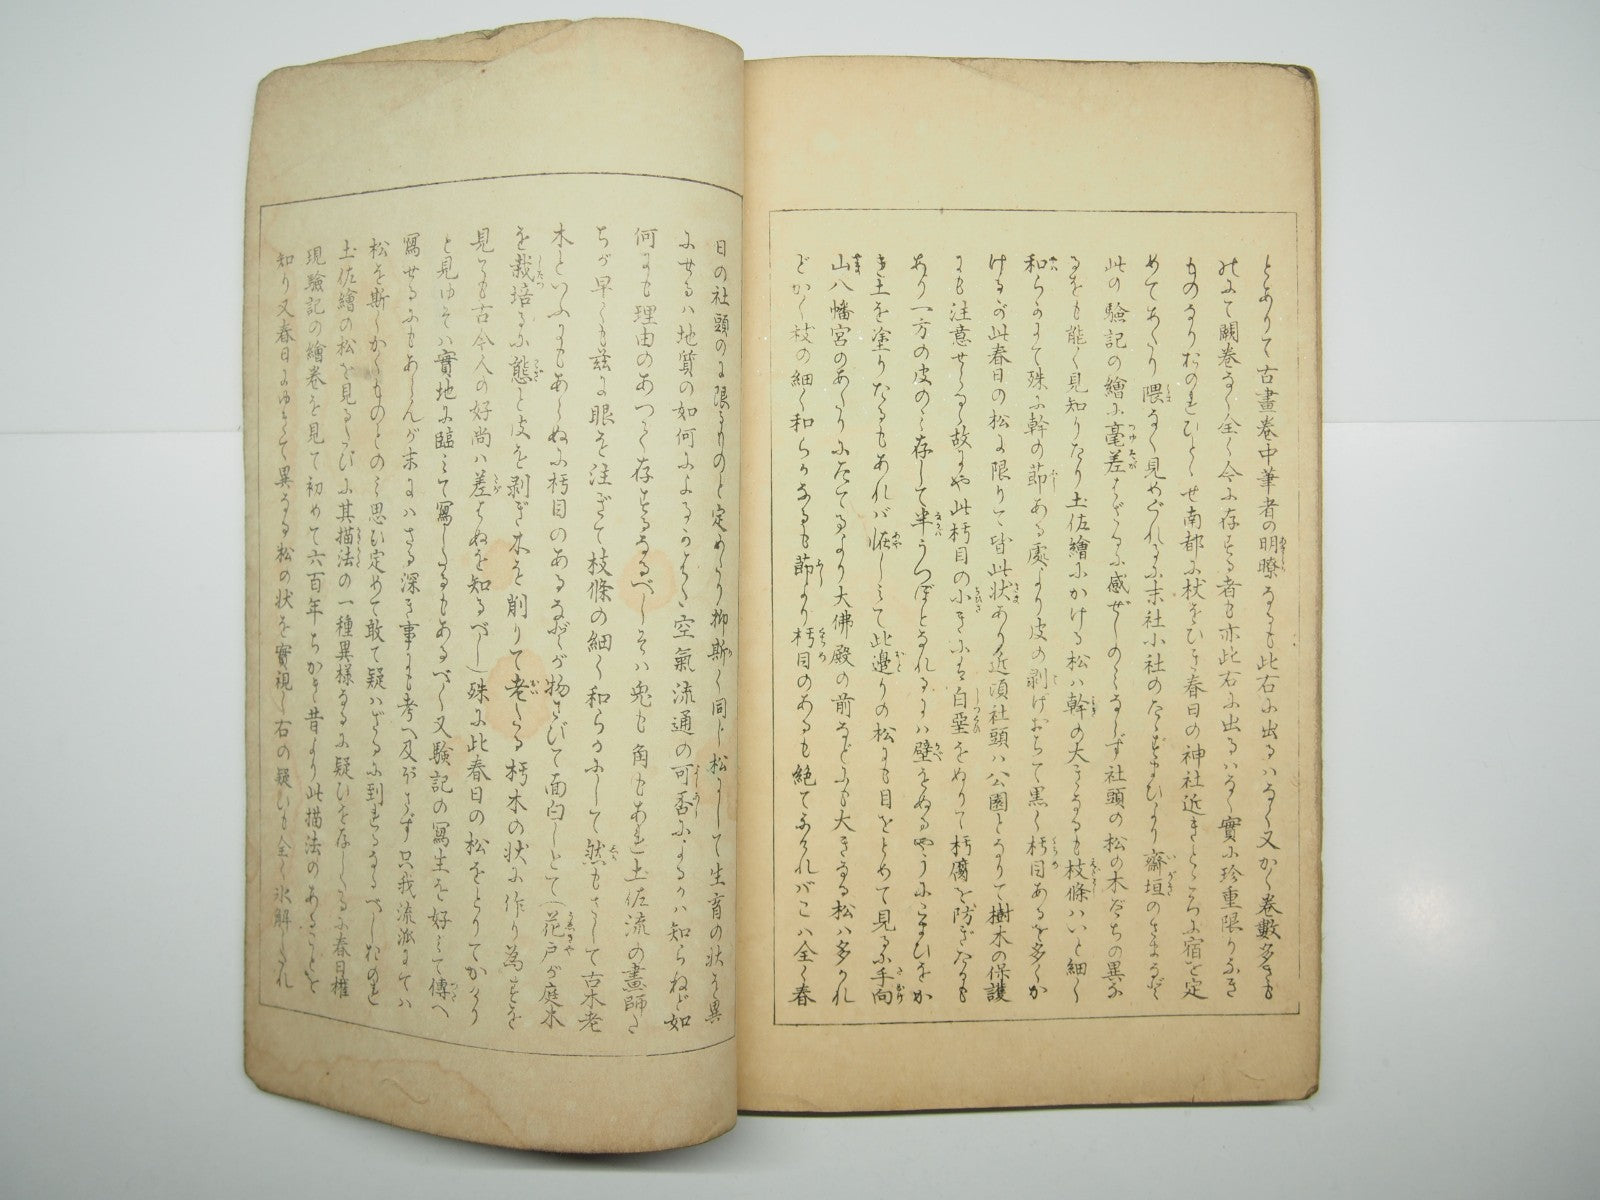 とありて古畫卷中筆者の明瞭なるも此右に出るハなく又かく卷數多きも
のにて闕卷なく全く今に存する者も亦此右に出るハなく實に珍重限りなき
ものなりおのれひとゝせ南都に杖をひき春日の神社近きところに宿を定
めてあたり隈なく見めぐれるに末社小社のたゝずまひより齋垣のさまなど
此の驗記の繪に毫差はざるに感ぜしのみならず社頭の松の木だちの異な
るをも能く見知りたり土佐繪にかける松ハ幹の大きなるも枝條ハいと細く
和らかにて殊に幹の節ある處より皮の剥げおちて黒く朽目あるを多くか
けるが此春日の松に限りて皆此状あり近頃社頭ハ公園となりて樹木の保護
にも注意せらるゝ故にや此朽目の小きにハ白堊をぬりて朽腐を防ぎたるも
あり一方の皮のミ存して半うつぼとなれるにハ壁をぬるやうにこまひをか
き土を塗りたるもあれバ恠しミて此邊りの松にも目をとめて見るに手向
山八幡宮のあたりにたてるより大佛殿の前などにも大きなる松ハ多かれ
どかく枝の細く和らかなるも節より朽目のあるも絶てなけれバこハ全く春
日の社頭のに限るものと定めたり抑斯く同じ松にして生育の状を異
にせるハ地質の如何によるかはた空氣流通の可否によるかハ知らねど如
何にも理由のあつて存するなるべしそハ兎も角もあれ土佐流の畫師た
ちが早くも茲に眼を注ぎて枝條の細く和らかにして然もさして古木老
木といふにもあらぬに朽目のあるなどが物さびて面白しとて(花戸が庭木
を栽培るに態と皮を剥ぎ木を削りて老たる朽木の状に作り為すを
見ても古今人の好尚ハ差はぬを知るべし)殊に此春日の松をとりてかけり
と見ゆそハ實地に臨ミて寫したるもあるべく又驗記の寫生を好ミて傳へ
寫せるにもあらんが末にハさる深き事にも考へ及ばさず只我流派にてハ
松を斯くかくものとのミ思ひ定めて敢て疑ハざるに到れるなるべしおのれ
土佐繪の松を見るたびに其描法の一種異樣なるに疑ひを存したるに春日權
現驗記の繪卷を見て初めて六百年ちかき昔より此描法のあることを
知り又春日にゆきて異なる松の状を實視し右の疑いも全く氷解したれ